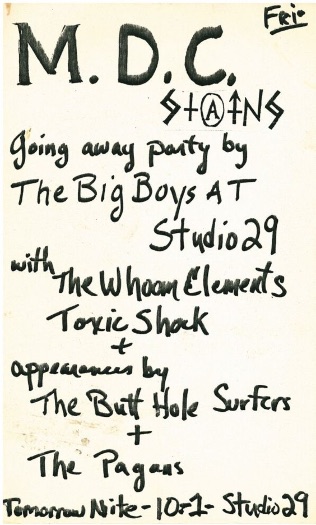 Fri.
M. D. C.
STAINS
Going away party by
The Big Boys AT
Studio 29
with The Whoom Elements
Toxic Shock
+
appearances by
The Butt Hole Surfers
+
The Pagans
Tomorrow Nite - 10-1 - Studio 29